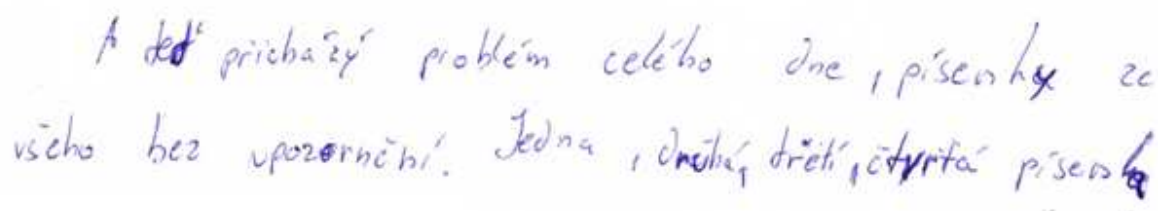 A teď přichážý problém celého dne, písemky ze
všeho bez upozornění. Jedna, druhá, třetí, čtvrtá písemka